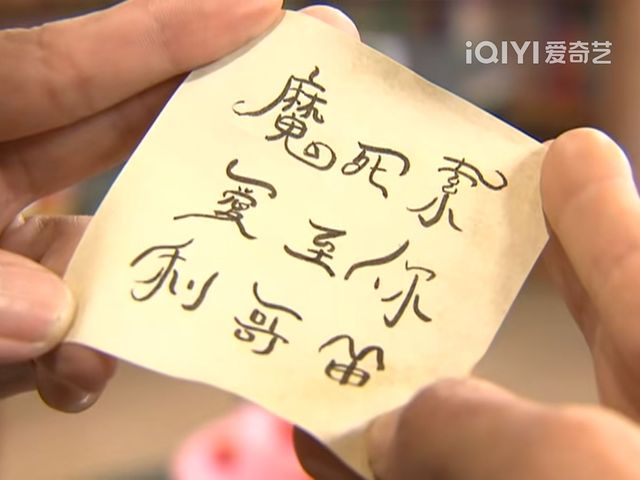 iQIYI爱奇艺
魔死索
愛至你
利哥笛